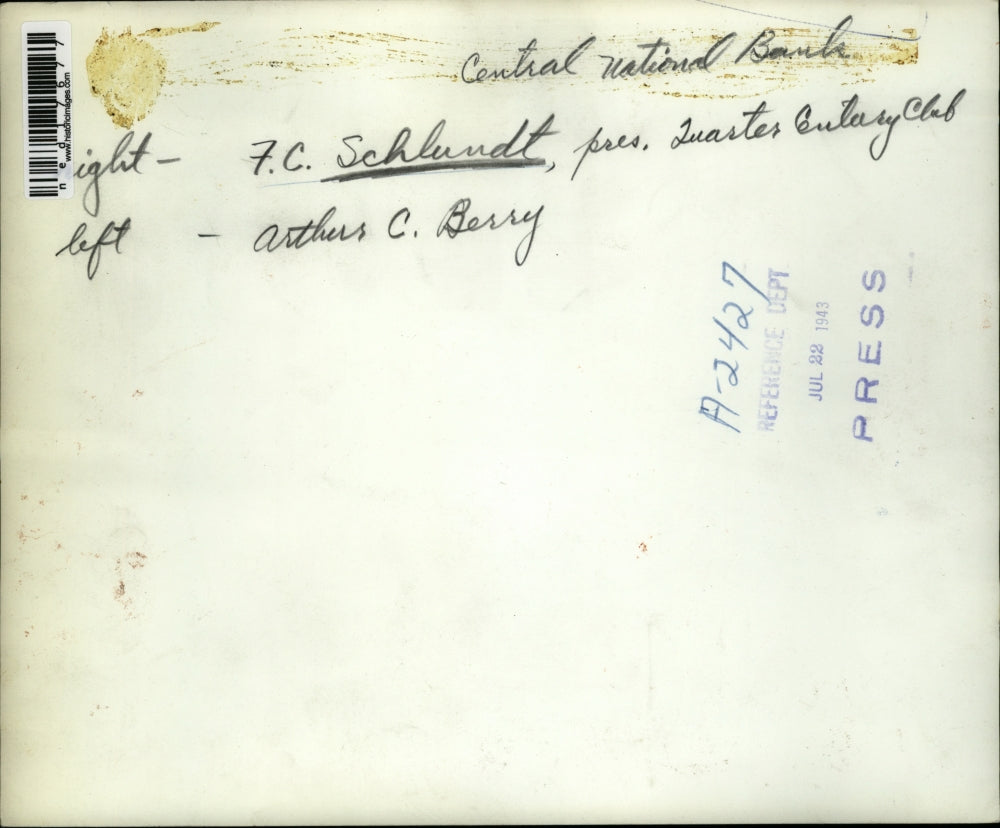 Central National Bank
ight - F.C. Schlundt, pres. Quarter Century Club
left - Arthur C. Berry
A-2427
REFERENCE DEPT
JUL 22 1943
PRESS
www.historicimages.com